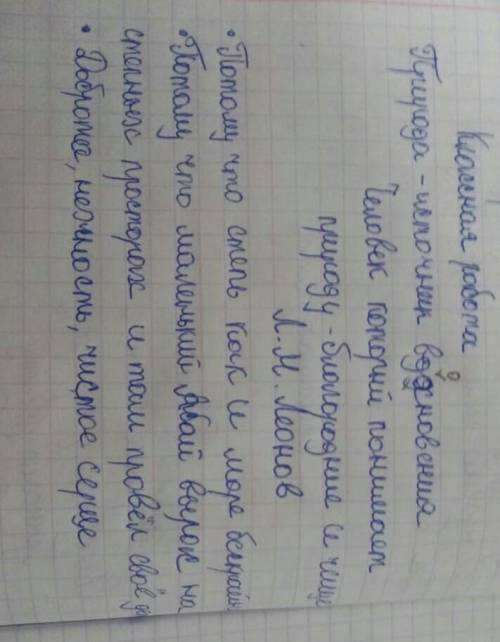 Классная работа
Природа - источник вдохновения
Человек который понимает
природу - благородние и чище
Л.М. Леонов
• Потому что степь как и море бескрайн
• Потому что маленький Абай вырос на
степных просторах и там провёл своё д
• Доброта, нежность, чистое серце